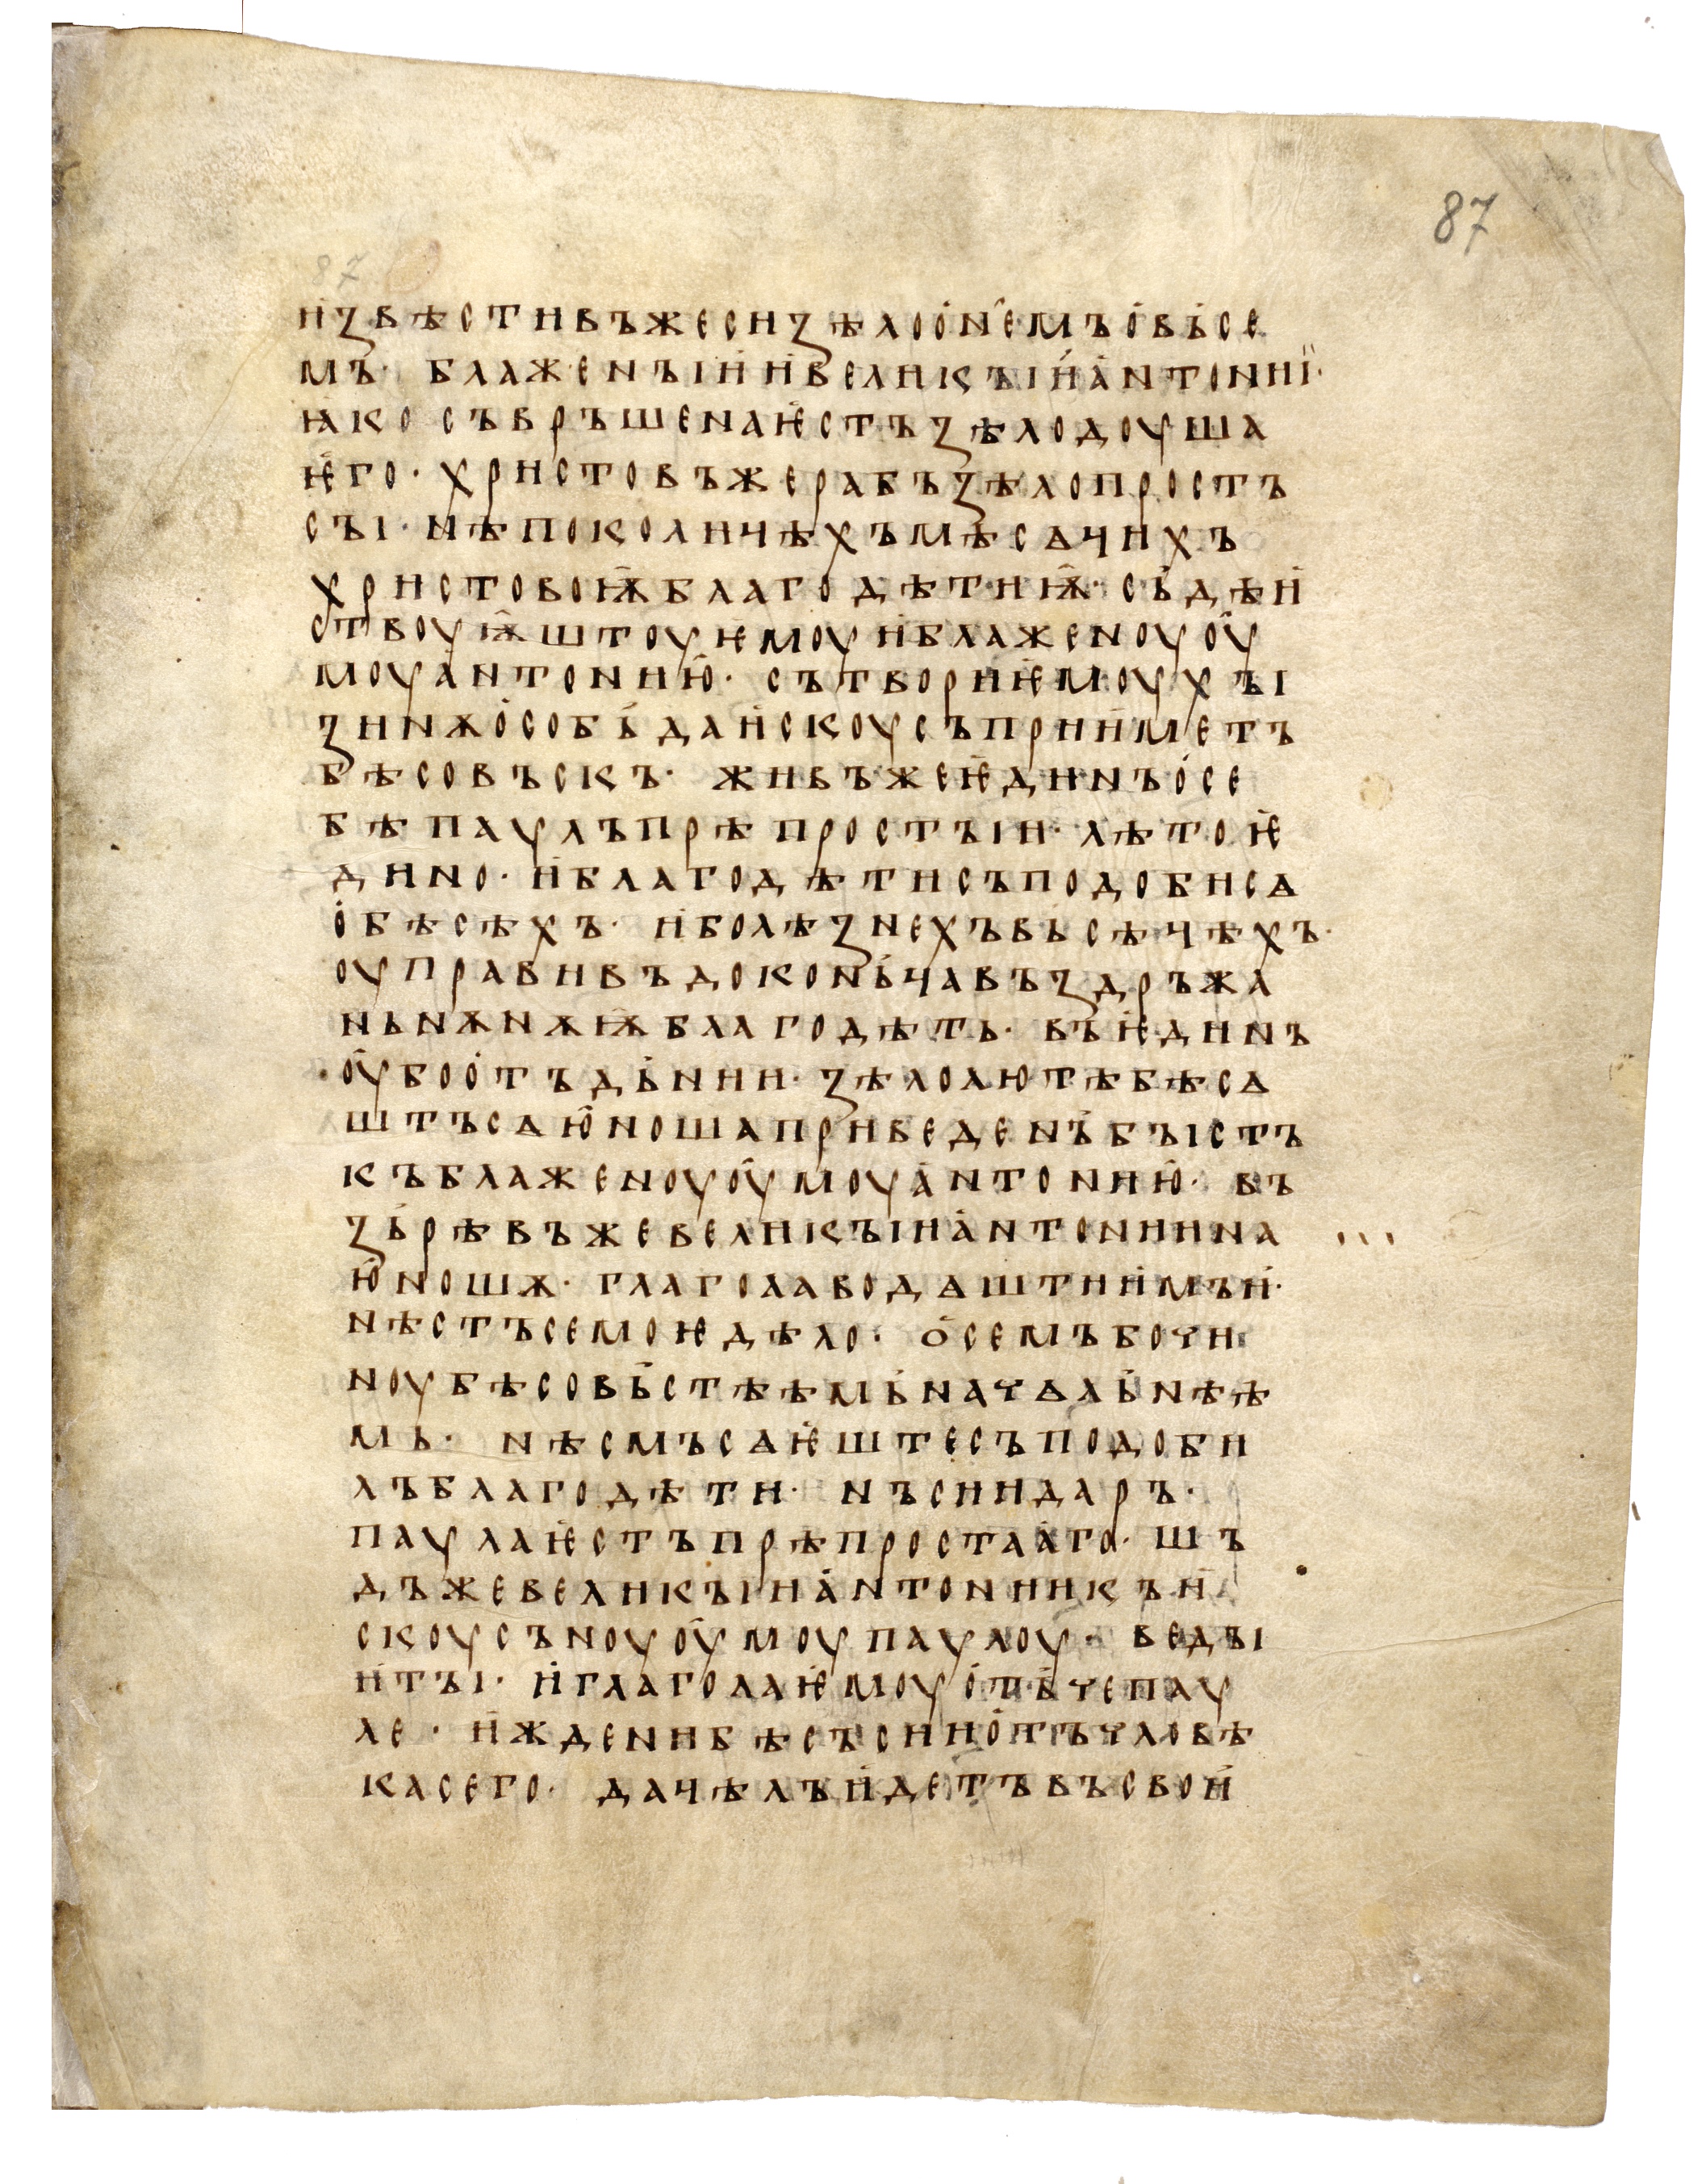 87
87
и҅ꙁвѣстивъжесиꙁѣлоо҅н҅емъо҅вь҆се
мъ· блаженъіи҅и҅великъіи҅а҅нтониі·
ꙗ҅косъвръшенаѥ҅стъꙁѣлодоуша
ѥ҅го· христовъжерабъꙁѣлопростъ
съі· нѣпоколицѣхъмѣсѧцихъ
христовоѭ҅благодѣтиѭ҅· съ҆дѣи҅
ствоуѭ҅штоуѥмоуи҅блаженоуо҅у
моуа҅нтонию҅· сътвориѥ҅моухъі
ꙁинѫо҅собь҆даи҅скоусъприи҅метъ
бѣсовъскъ· живъжеѥ҅динъо҅се
бѣпаулъпрѣпростъіи· лѣтоѥ҅
дино· и҅благодѣтисъподобисѧ
о҅бѣсѣхъ· и҅болѣꙁнехъвь҆сѣцѣхъ·
оуправивъдоконь҆цавъꙁдръжа
ньнѫнѫѭ҅благодѣть· въѥ҅динъ
о҅убоо҅тъдь҆нии· ꙁѣлолютѣбѣсѧ
штъсѧю҅ношаприведенъ҆бъістъ
къблаженоуо҅умоуа҅нтонию҅· въ
ꙁь҆рѣвъжевеликъіиа҅нтониина
ю҅ношѫ· глаголаводѧштии҅мъи҅·
нѣстъсемоѥдѣло· о҅семъбочи
ноубѣсовь҆стѣѣмь҆начѧль҆нѣѣ
мь· нѣсмъсѧѥ҅штесъподоби
лъблагодѣти· нъсиидаръ·
паулаѥ҅стъпрѣпростаа҅го· шъ
дъжевеликъіиа҅нтониикъи҅
скоусъноуо҅умоупаулоу· ведъі
и҅тъі· и҅глаголаѥ҅моуо҅ть҆чепау
ле· и҅жденибѣсъсиио҅тъчловѣ
касего· дацѣлъи҅детъвъсвои҅